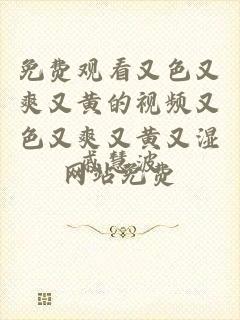 免费观看又色又
爽又黄的视频又
色又爽又黄又湿
网站免费
戚慧波